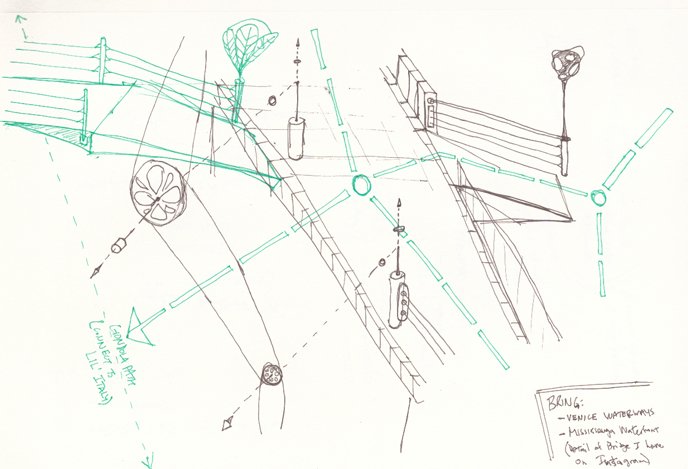 GONDOLA PATH
(CONNECT TO
LIL' ITALY)
BRING:
- VENICE WATERWAYS
- MISSISSAUGA Waterfront
(Detail of Bridge I have
on Instagram)